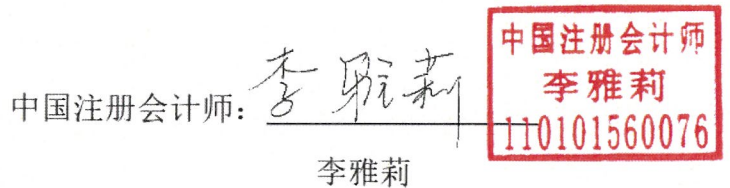 中国注册会计师：李雅莉
李雅莉
中国注册会计师
李雅莉
110101560076